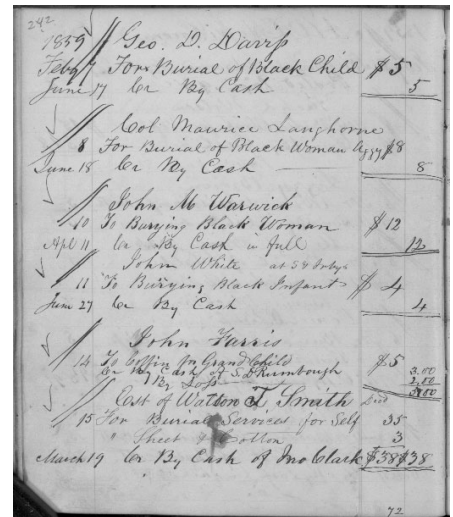 242
1859 Geo. D. Davis
Feby 7 For Burial of Black Child $5
June 17 Cr By Cash 5
Col Maurice Langhorne
8 For Burial of Black Woman Aggy $8
June 18 Cr By Cash 8
John M Warwick
10 To Burying Black Woman $12
Apl 11 Cr By Cash in full 12
John White at
11 To Burying Black Infant $4
June 27 Cr By Cash 4
John Farris
14 To Coffin for Grand Child $5
Cr By Cash of S Rumbough 3.00
By Loss 2.00
5.00
Est of Walton T. Smith
15 For Burial Services for Self 35
" Sheet & Cotton 3
March 19 Cr By Cash of Jno Clark $38 $38
72